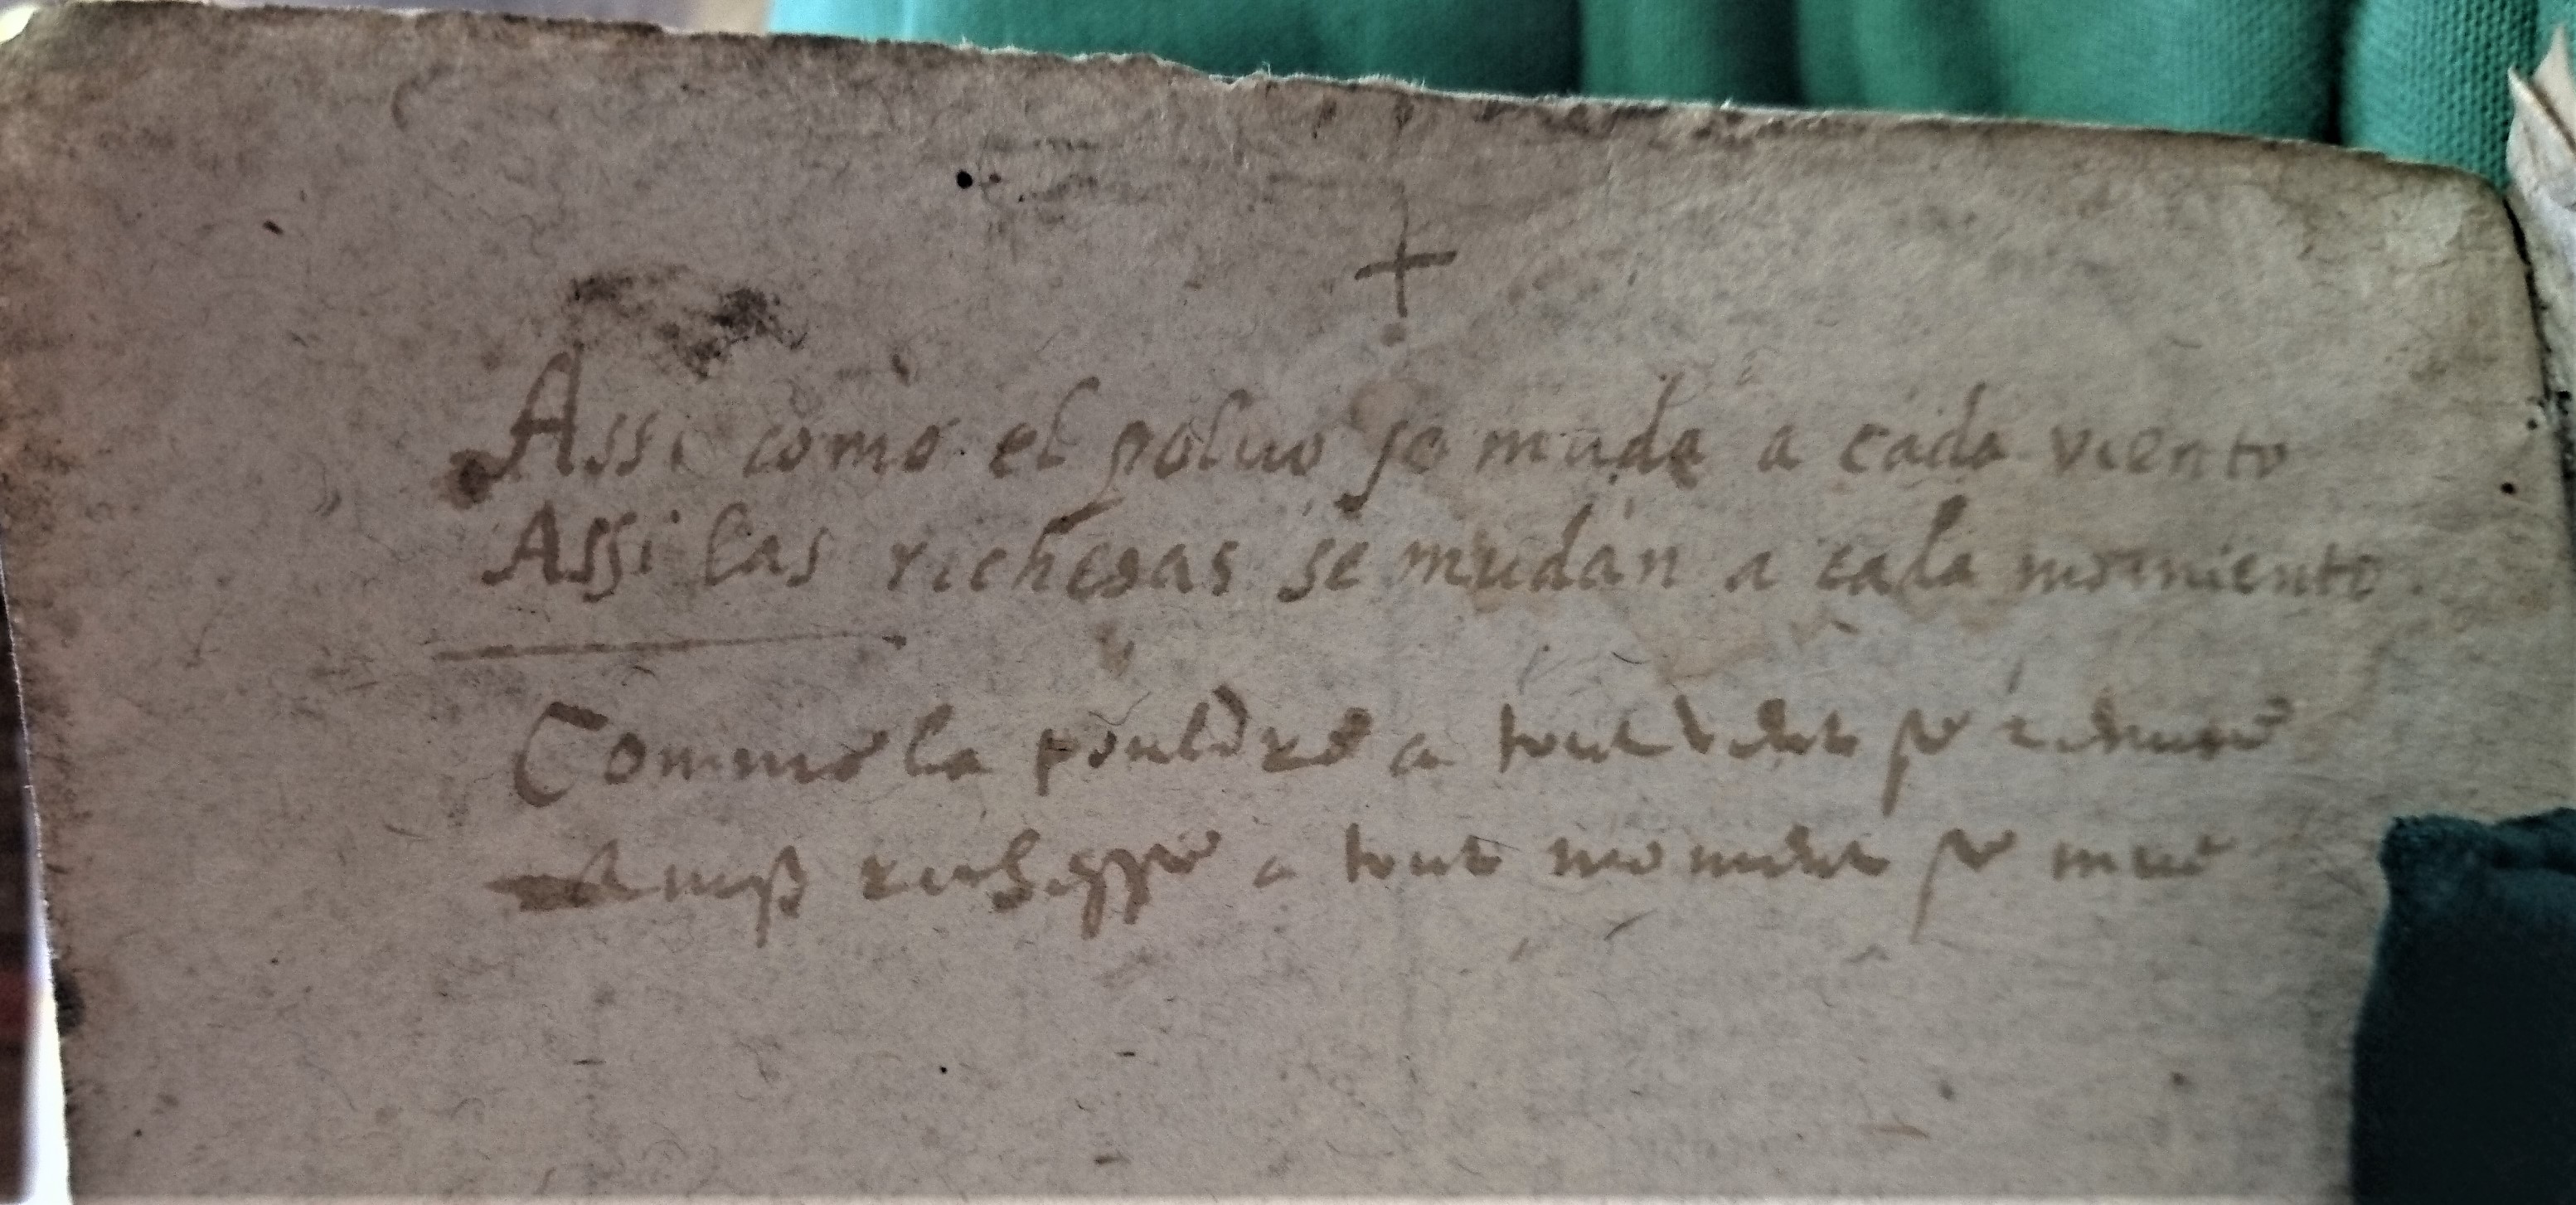 +
Assi como el poluo se muda a cada viento
Assi las richesas se mudan a cada momiento.
Comme la pouldre a tout vent se remue
Ainsi richesse a tout moment se mue